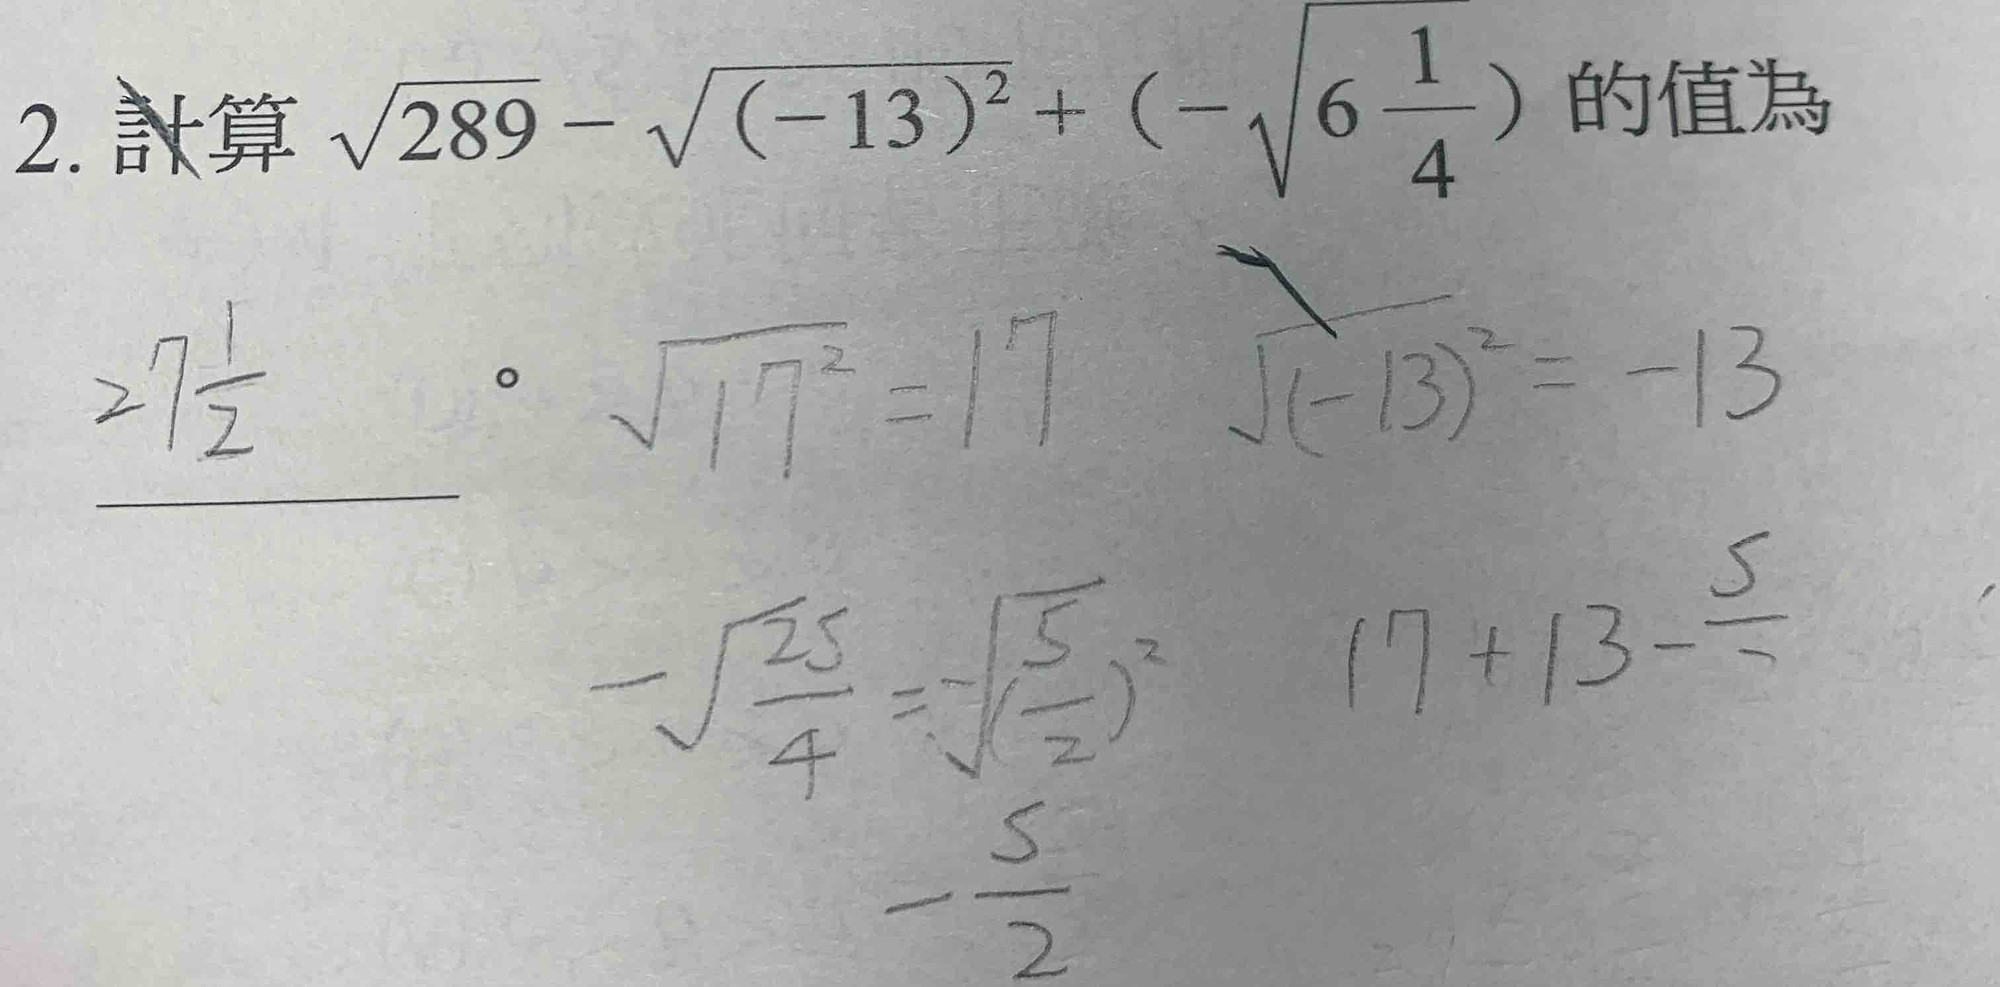 2. 計算 √289 − √(−13)² + (−√6 1/4) 的值為
27 1/2 。 √17² = 17 √(-13)² = -13
-√25/4 = -√(5/2)² 17 + 13 - 5/
-5/2